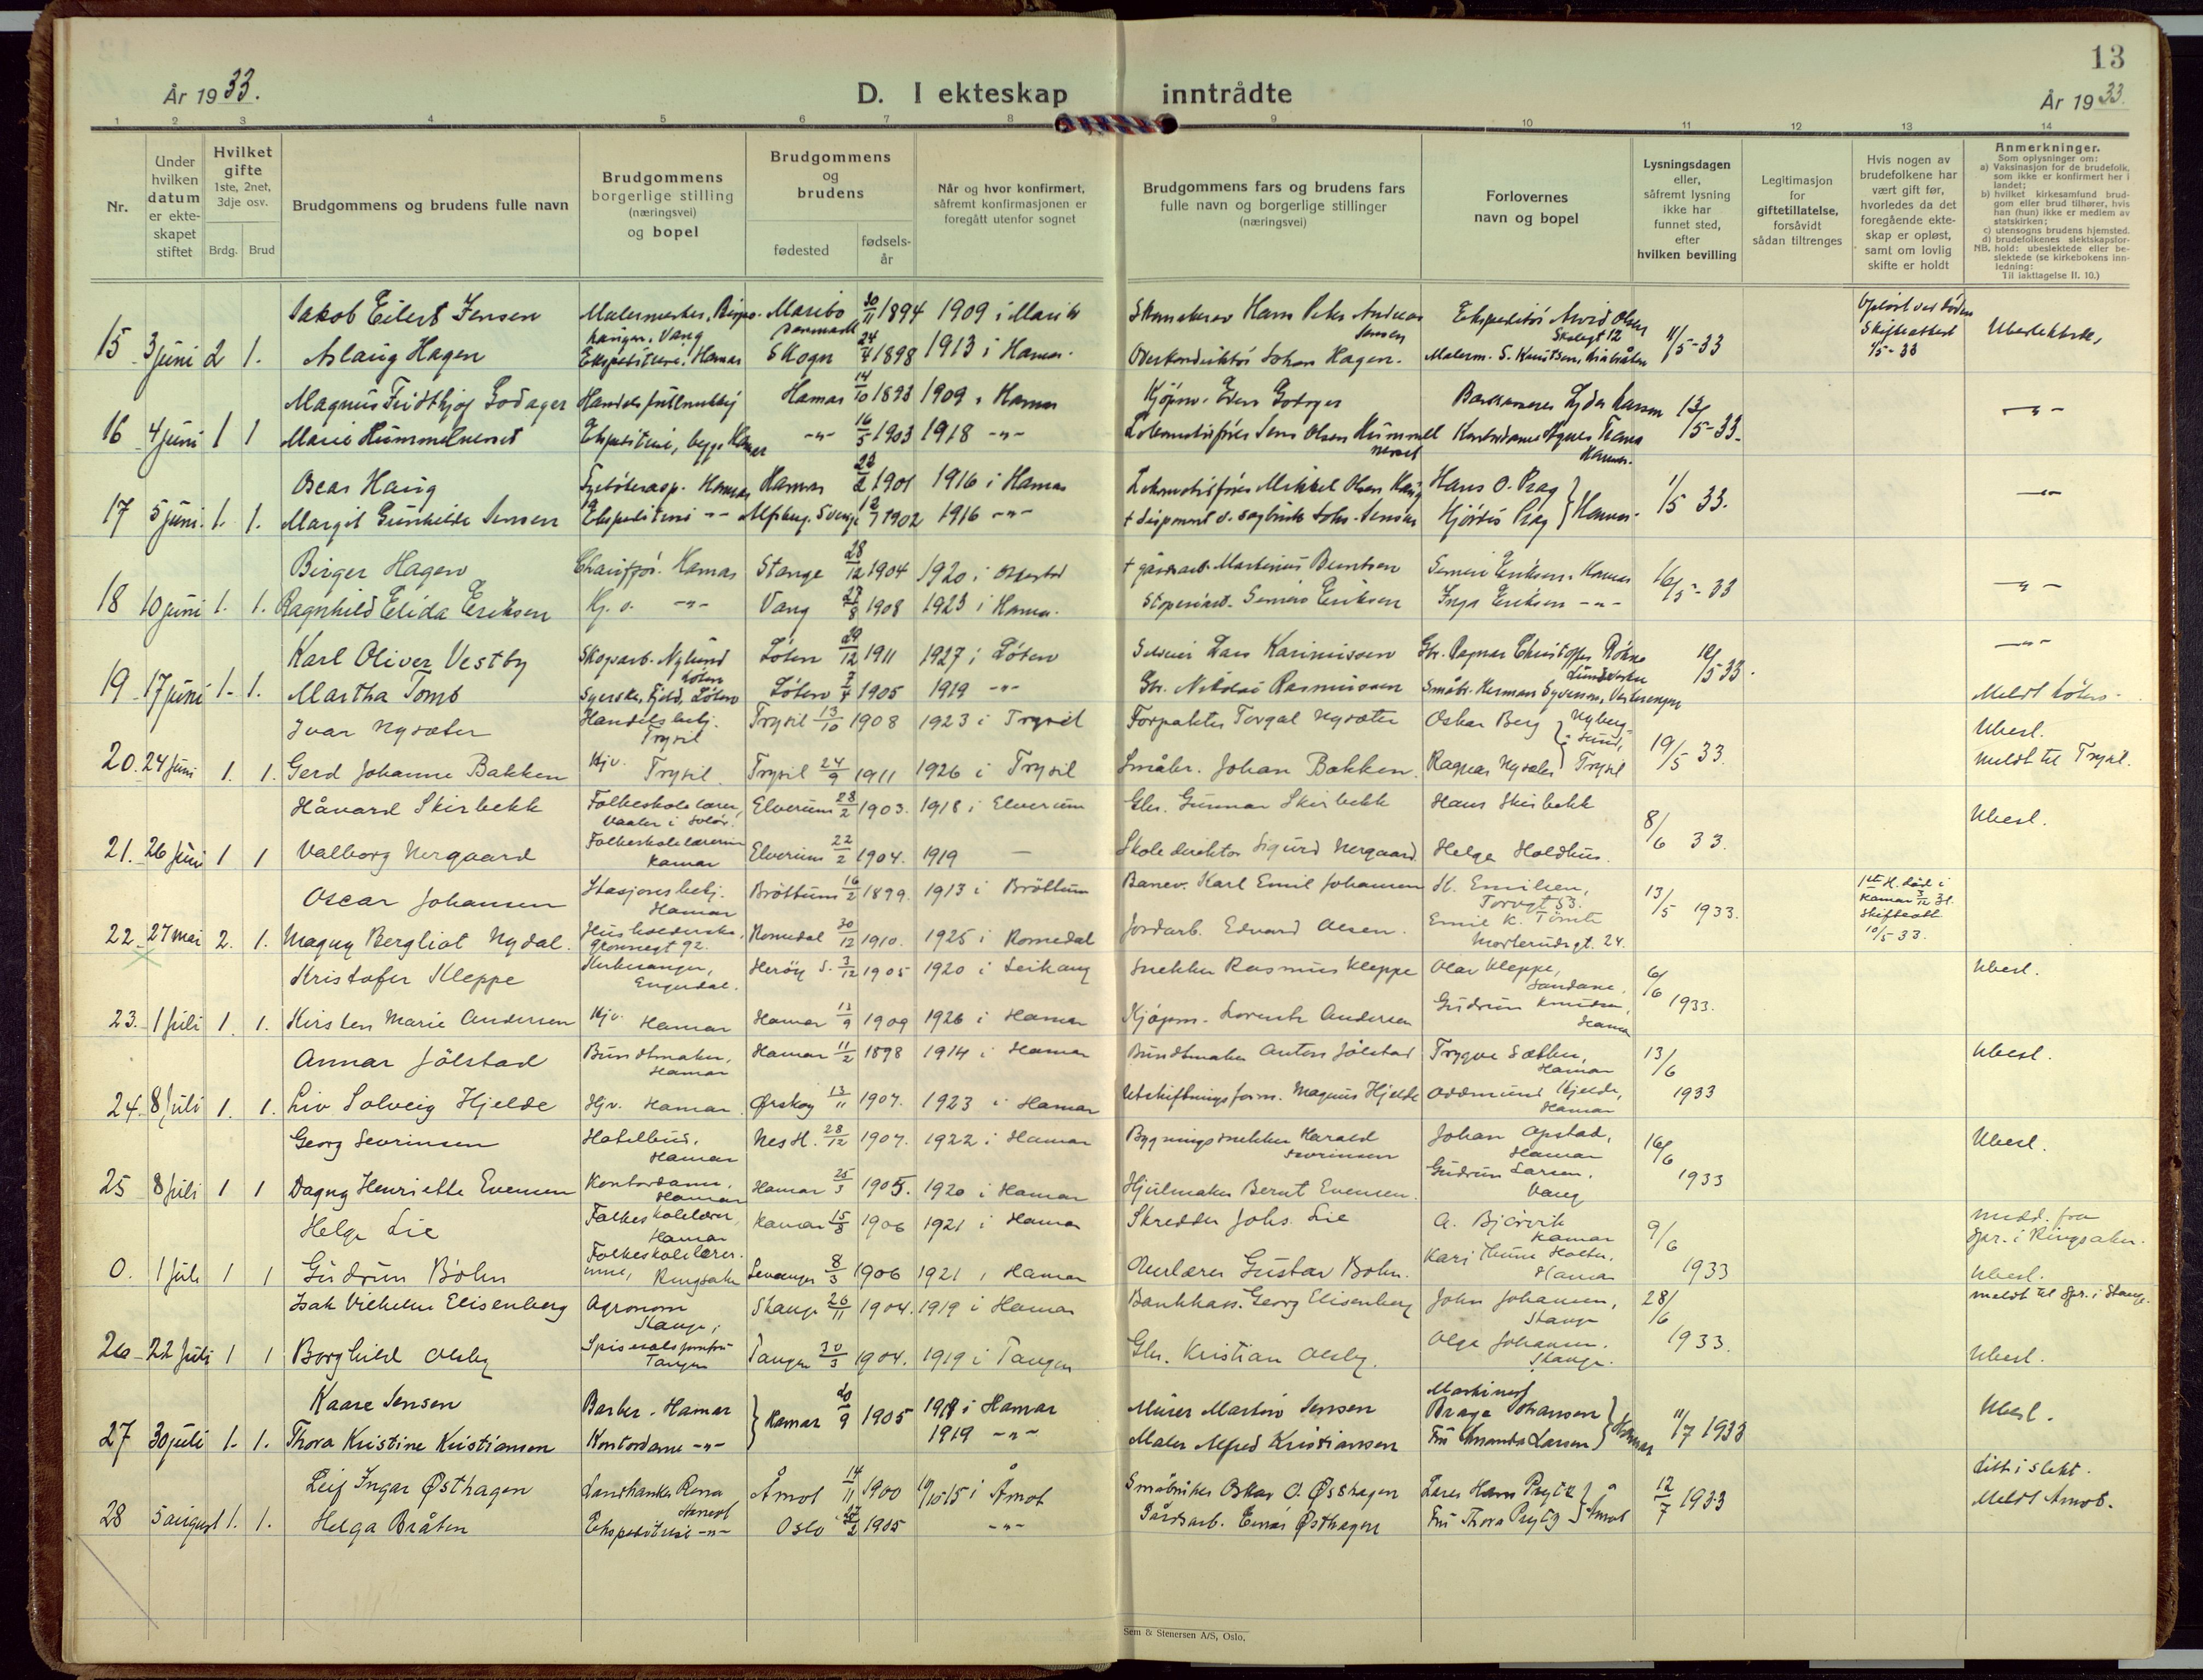 13
År 1933.
D. I ekteskap inntrådte
År 1933.
1 2 3 4 5 6 7 8 9 10 11 12 13 14
Nr.
Under hvilken datum er ekte-skapet stiftet
Hvilket gifte 1ste, 2net, 3dje osv.
Brdg. Brud
Brudgommens og brudens fulle navn
Brudgommens borgerlige stilling (næringsvei) og bopel
Brudgommens og brudens
fødested
fødsels-år
Når og hvor konfirmert, såfremt konfirmasjonen er foregått utenfor sognet
Brudgommens fars og brudens fars fulle navn og borgerlige stillinger (næringsvei)
Forlovernes navn og bopel
Lysningsdagen eller, såfremt lysning ikke har funnet sted, efter hvilken bevilling
Legitimasjon for giftetillatelse, forsåvidt sådan tiltrenges
Hvis nogen av brudefolkene har vært gift før, hvorledes da det foregående ekte-skap er opløst, samt om lovlig skifte er holdt
Anmerkninger.
Som oplysninger om:
a) Vaksinasjon for de brudefolk, som ikke er konfirmert her i landet;
b) hvilket kirkesamfund brud-gom eller brud tilhører, hvis han (hun) ikke er medlem av statskirken;
c) utensogns brudens hjemsted.
d) brudefolkenes slektskapsfor-hold: ubeslektede eller be-slektede (se kirkebokens inn-ledning:
NB. Til iaktlagelse II. 10.)
Jakob Eilert Jensen Maribo Danmark 30/11 1894 1909 i Maribo Hans Peter Andreas Jensen Ekspeditør Arvid Olsen
15 3 juni 2 1. Aslaug Hagen Ekspeditrise, Hamar Skogn 24/4 1898 1913 i Hamar. Overkonduktør Johan Hagen. 11/5-33 Skifteattest Ubeslektede,
Magnus Fridthjof Godager Handelsfullmektig Hamar 14/10 1893 1909 i Hamar Kjøpm. Godager
16 4 juni 1 1 Marie Hummelneset Ekspeditrise, Hamar -"- 16/5 1903 1918 -"- Lokomotivfører Jens Olsen Hummelneset Hamar. 13/5-33. -"-
Oscar Haug Hamar Hamar 1901 1916 i Hamar Lokomotivfører Mikkel Olsen Haug Hans O. Prag
17 5 juni. 1. 1. Margit Gunhilde Jensen Ekspeditrise -"- 1902 1916 -"- Hjørdis Prag } Hamar. 1/5 33. -"-
Birger Hagen Chauffør. Hamar Stange 28/12 1904 1920 i Martinius Berntsen Eriksen, Hamar
18 10 juni 1. 1. Ragnhild Elida Eriksen -"- Vang 1908 1923 i Hamar. Eriksen Inga Eriksen -"- 16/5-33 -"-
Karl Oliver Vestby Skogsarb. Nylund Løten Løten 29/12 1911 1927 i Løten Lars Kariniussen Gbr. Ragnar Christoffer
19 17 juni 1. 1. Martha Tomb Syerske, Fjeld, Løten Løten 1905 1919 -"- Gbr. Nikolai Rasmussen Småbr. Herman Syversen, 5 33. -"- Meldt Løten.
Ivar Nysæter Handelsbetj. Trysil Trysil 13/10 1908 1923 i Trysil Forpakter Torgal Nysæter Oskar Berg Nyberg-sund, Ubesl.
20. 24 juni 1. 1. Gerd Johanne Bakken Hjv. Trysil. Trysil 24/9 1911 1926 i Trysil Småbr. Johan Bakken. Ragnar Nysæter } Trysil 19/5 33. meldt til Trysil.
Håvard Skirbekk Folkeskolelærer, Vaaler i Solør. Elverum 28/2 1903. 1918 i Elverum Gbr. Gunnar Skirbekk Hans Skirbekk Ubesl.
21. 26 juni 1 1 Valborg Nergaard Folkeskolelærerin Hamar Elverum 22/2 1904. 1919 — Skoledirektør Sigurd Nergaard. Helge Holdhus. 8/6 33.
Oscar Johansen Stasjonsbetj. Hamar Brøttum 16/2 1899. 1913 i Brøttum Banev. Karl Emil Johansen H. Emilsen, Torvgt 53. død i Hamar 3/12 31. Skifteatt 10/5 33.
22. 27 mai 2. 1. Magny Bergliot Nydal. Husholderske, Grønnegt 92. Romedal 30/12 1910. 1925 i Romedal Jordarb. Edvard Olsen. Emil K. Tømte Morterudsgt. 24. 13/5 1933.
Kristofer Kleppe Kirkesanger, Engerdal. Herøy S. 3/12 1905 1920 i Leikang Snekker Rasmus Kleppe Olav Kleppe, Sandane. Ubesl.
23. 1 juli 1. 1. Kirsten Marie Andersen Hjv. Hamar Hamar 13/9 1909 1926 i Hamar Kjøpm. Lorentz Andersen Gudrun Knudsen, Hamar 6/6 1933.
Annar Jølstad Bundtmaker, Hamar Hamar 11/2 1898 1914 i Hamar Bundtmaker Anton Jølstad Trygve Sæther, Hamar 13/6 Ubesl.
24. 8 juli 1. 1. Liv Solveig Hjelde Hjv. Hamar. Ørskog 13/11 1907. 1923 i Hamar Utskiftningsform. Magnus Hjelde Oddmund Hjelde, Hamar 1933
Georg Sevrinsen Hotelbud, Hamar Nes H. 28/12 1907. 1922 i Hamar Bygningssnekker Harald Sevrinsen Johan Opstad, Hamar 16/6 Ubesl.
25 8 juli 1 1 Dagny Henriette Evensen Kontordame, Hamar Hamar 25/3 1905. 1920 i Hamar Hjulmaker Bernt Evensen. Gudrun Larsen. Vang 1933
Helge Lie Folkeskolelærer, Hamar Hamar 15/8 1906 1921 i Hamar Skredder Johs. Lie A. Bjørvik Hamar 9/6 medd. fra Spr. i Ringsaker.
0. 1 juli 1 1 Gudrun Bøhn Folkeskolelærer-inne, Ringsaker Levanger 8/3 1906 1921 i Hamar Overlærer Gustav Bohn. Hamar 1933 Ubesl.
Isak Vilhelm Elisenberg Agronom Stange, Stange 26/11 1904. 1919 i Hamar Bankkass. Georg Elisenberg John Johansen, Stange 28/6 meldt til Spr. i Stange.
26 22 juli 1 1 Borghild Olsby Tangen Tangen 30/3 1904. 1919 i Tangen Gbr. Kristian Olsby. Olga Johansen. Stange. 1933. Ubesl.
Kaare Jensen Barber. Hamar } Hamar 1905 1919 i Hamar Murer Martin Jensen Maskinist Brage Johansen Ubesl.
27 30 juli 1. 1. Thora Kristine Kristiansen Kontordame -"- 1919 -"- Maler Alfred Kristiansen Fru Amanda Larsen } Hamar 11/7 1933
Leif Ingar Østhagen Landhandler Rena Åmot 14/11 1900 15 i Åmot Småbruker Oskar O. Østhagen Lærer Hans Prytz
28 5 august 1. 1. Helga Bråten Ekspeditrise -"- Oslo 1905 -"- Gårdsarb. Einar Østhagen Fru Thora Prytz } Åmot 12/7 1933 Meldt Åmot.
Sem & Stenersen A/S, Oslo.